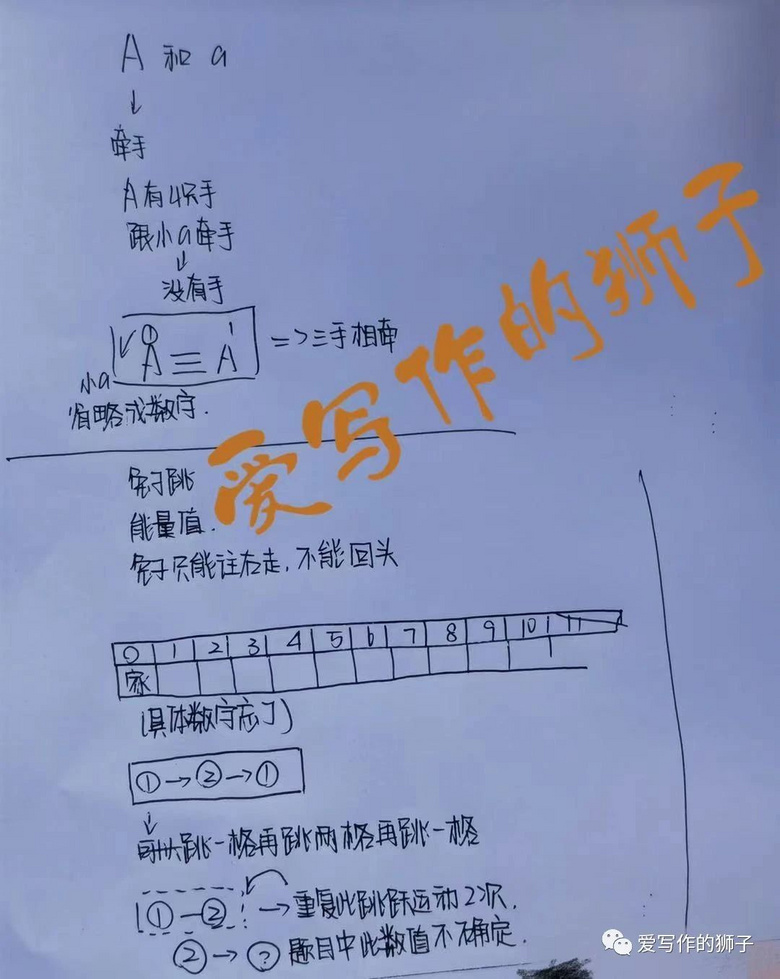 A 和 a
↓
牵手
A有4只手
跟小a牵手
↓
没有手
① 1
A≡A => 三手相牵
小a
省略成数字.
兔子跳
能量值.
兔子只能往右走,不能回头
0 1 2 3 4 5 6 7 8 9 10 11
家
(具体数字忘了)
①→②→①
↓
跳一格再跳两格再跳一格
①—② → 重复此跳跃运动2次.
②→? 题目中此数值不确定.
爱写作的狮子
爱写作的狮子